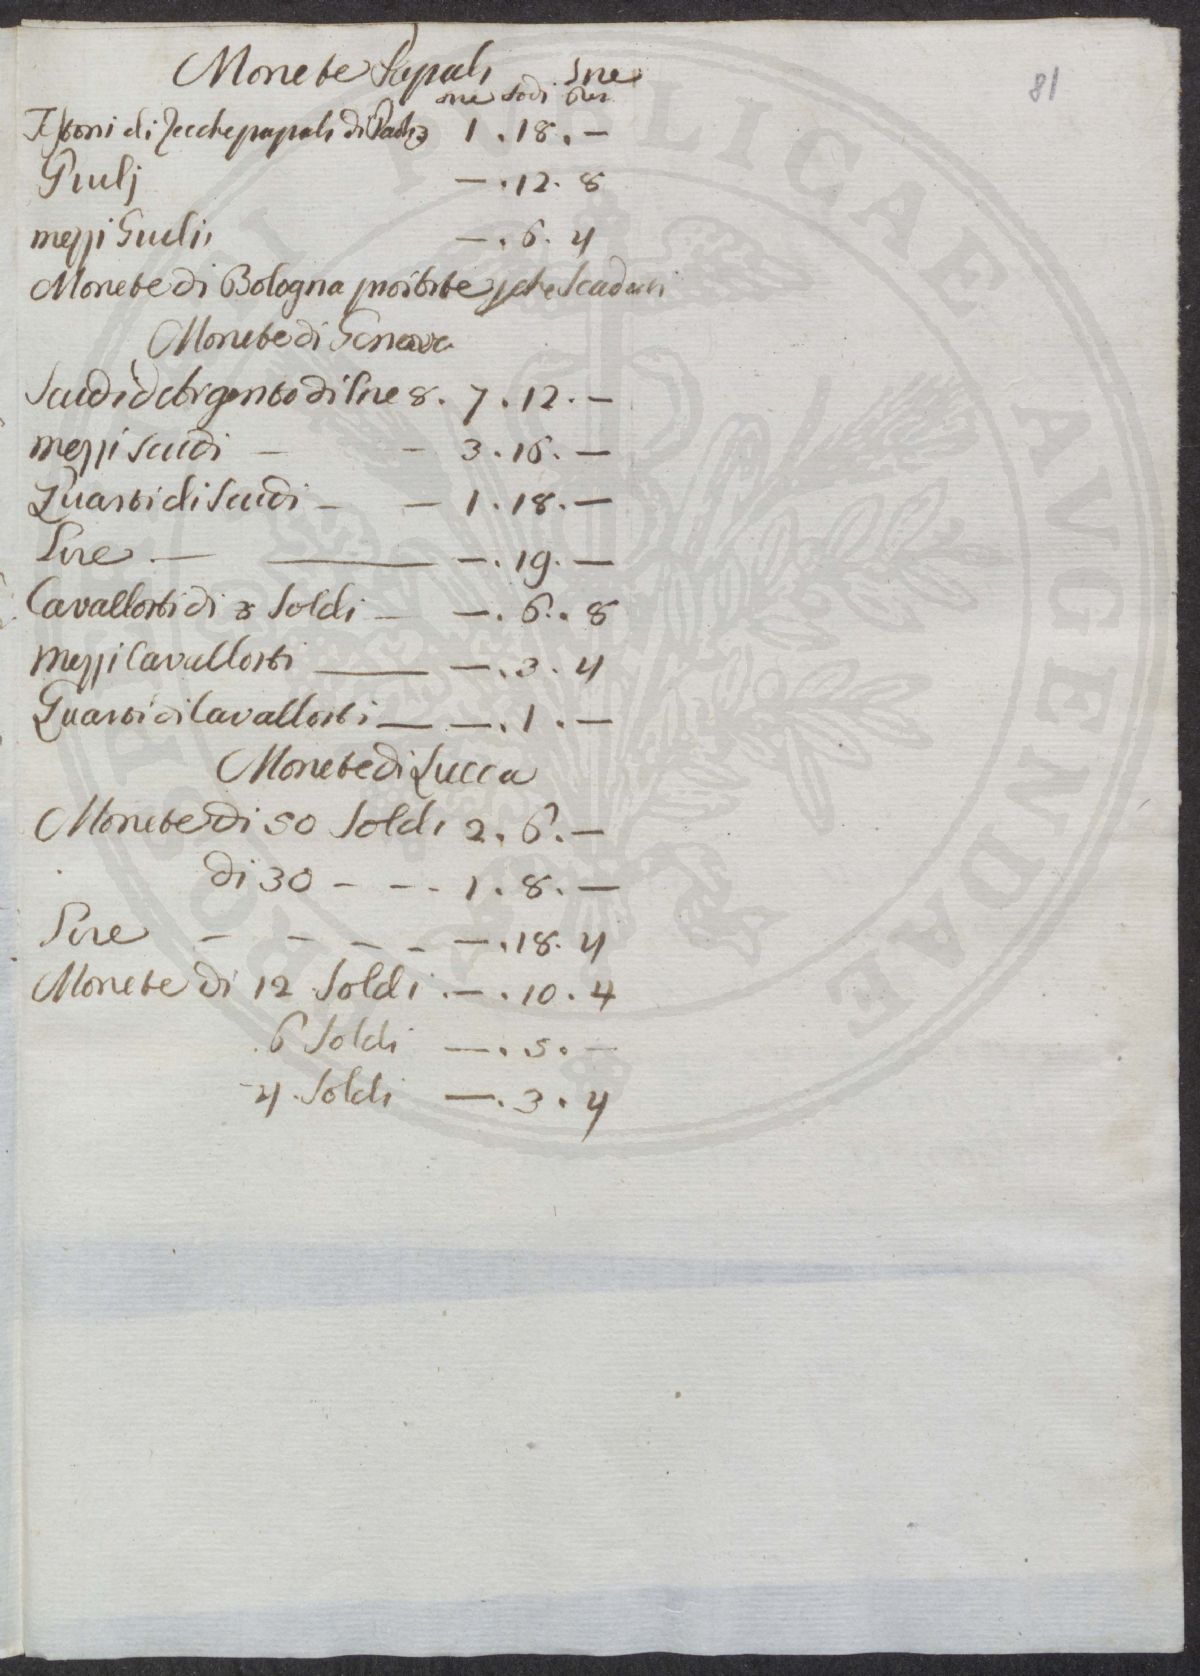 Monete Papali
81
Testoni di Zecche papali di Paoli 3 1 . 18 . —
Giulj — . 12 . 8
mezzi Giulii — . 6 . 4
Monete di Bologna proibite
Monete di Genova
Scudi d'Argento di lire 8 . 7 . 12 . —
mezzi scudi — - 3 . 16 . —
Quarti di Scudi - — 1 . 18 . —
Lire — — — . 19 . —
Cavallotti di 8 Soldi — — . 6 . 8
mezzi Cavallotti — — . 3 . 4
Quarti di Cavallotti — — . 1 . —
Monete di Lucca
Monete di 50 Soldi 2 . 6 . —
di 30 - - - 1 . 8 . —
Lire - - - - — . 18 . 4
Monete di 12 Soldi . — . 10 . 4
6 Soldi — . 5 . —
4 Soldi — . 3 . 4
PUBLICAE AUGENDAE